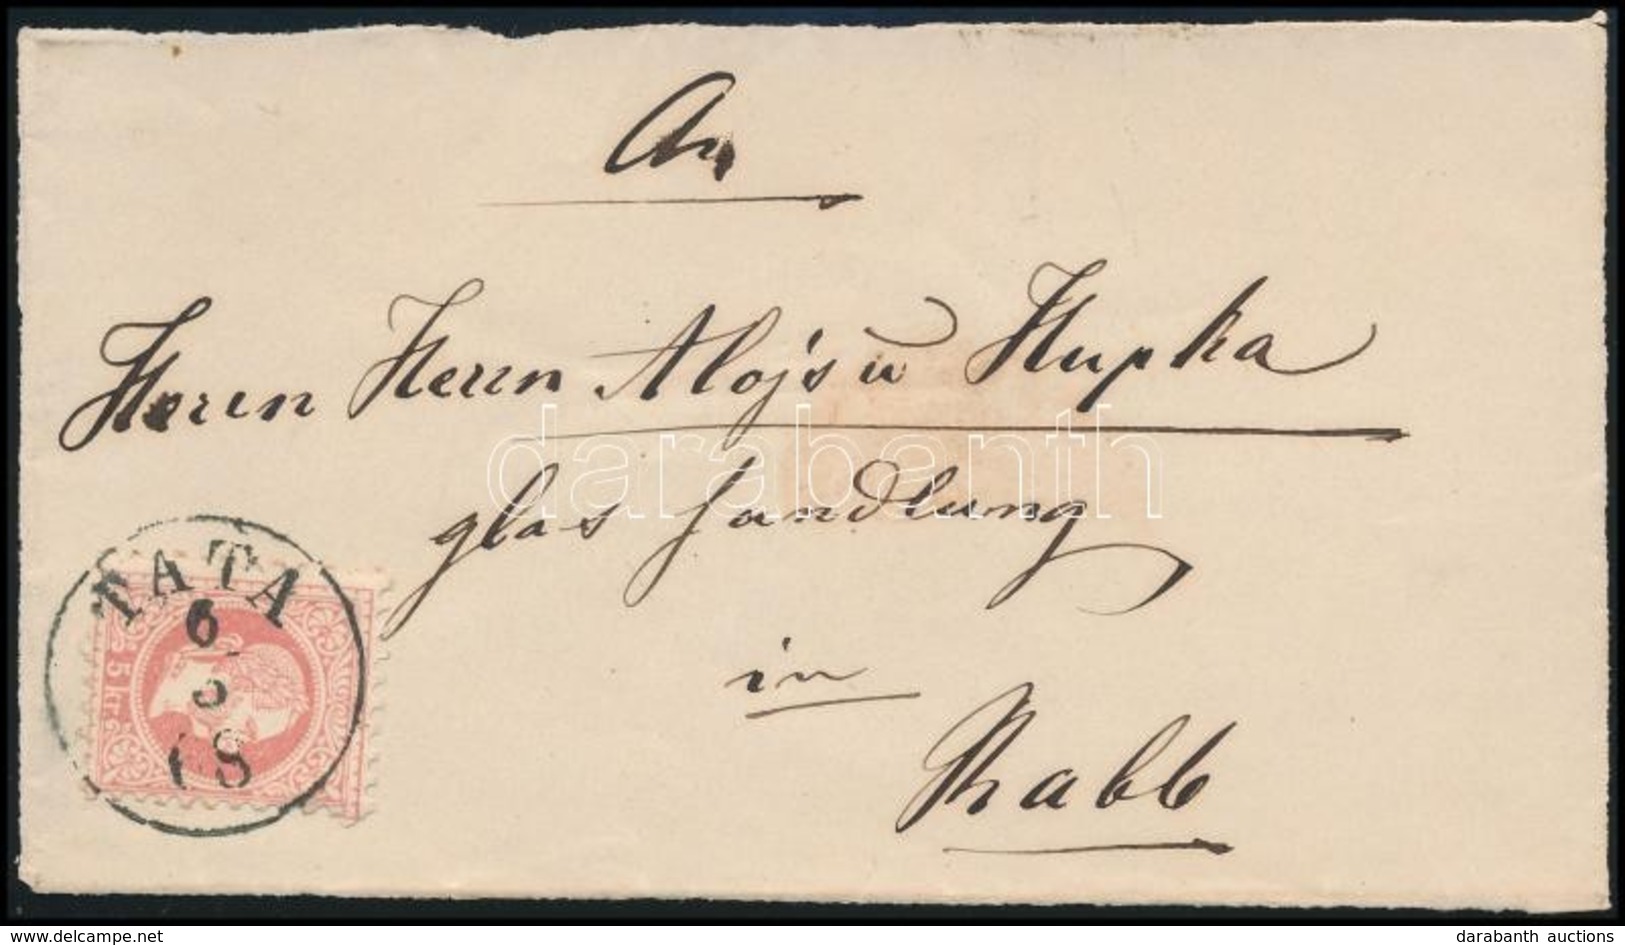 An
Herrn Herrn Alojs u Hupka
glas handlung
in
Raab
TATA
6
3
68
5 kr
darabanth
www.delcampe.net
darabanth auctions